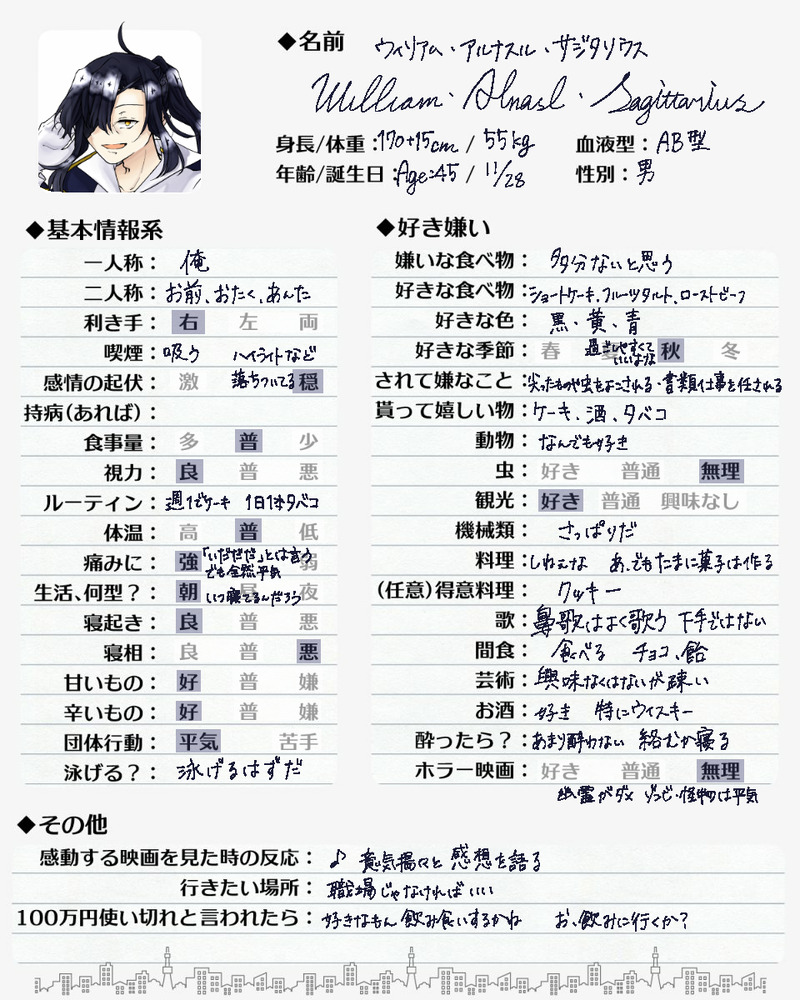 ◆名前 ウィリアム・アルナスル・サジタリウス
William・Alnasl・Sagittarius
身長/体重：170+15cm / 55kg 血液型：AB型
年齢/誕生日：Age:45 / 11/28 性別：男
◆基本情報系
一人称：俺
二人称：お前、おたく、あんた
利き手：右 左 両
喫煙：吸う ハイライトなど
感情の起伏：激 落ちついてる 穏
持病(あれば)：
食事量：多 普 少
視力：良 普 悪
ルーティン：週1でケーキ 1日1本タバコ
体温：高 普 低
痛みに：強 「いだだだ」とは言う 弱
でも全然平気
生活、何型？：朝 昼 夜
いつ寝てるんだろう
寝起き：良 普 悪
寝相：良 普 悪
甘いもの：好 普 嫌
辛いもの：好 普 嫌
団体行動：平気 苦手
泳げる？：泳げるはずだ
◆好き嫌い
嫌いな食べ物：多分ないと思う
好きな食べ物：ショートケーキ、フルーツタルト、ローストビーフ
好きな色：黒、黄、青
好きな季節：春 過ごしやすくて 秋 冬
いいよな
されて嫌なこと：尖ったものや虫をよこされる・書類仕事を任される
貰って嬉しい物：ケーキ、酒、タバコ
動物：なんでも好き
虫：好き 普通 無理
観光：好き 普通 興味なし
機械類：さっぱりだ
料理：しねェな あ、でもたまに菓子は作る
(任意)得意料理：クッキー
歌：鼻歌はよく歌う 下手ではない
間食：食べる チョコ、飴
芸術：興味なくはないが疎い
お酒：好き 特にウィスキー
酔ったら？：あまり酔わない 絡むか寝る
ホラー映画：好き 普通 無理
幽霊がダメ ゾンビ・怪物は平気
◆その他
感動する映画を見た時の反応：♪ 意気揚々と感想を語る
行きたい場所：職場じゃなければいい
100万円使い切れと言われたら：好きなもん飲み食いするかね お、飲みに行くか？